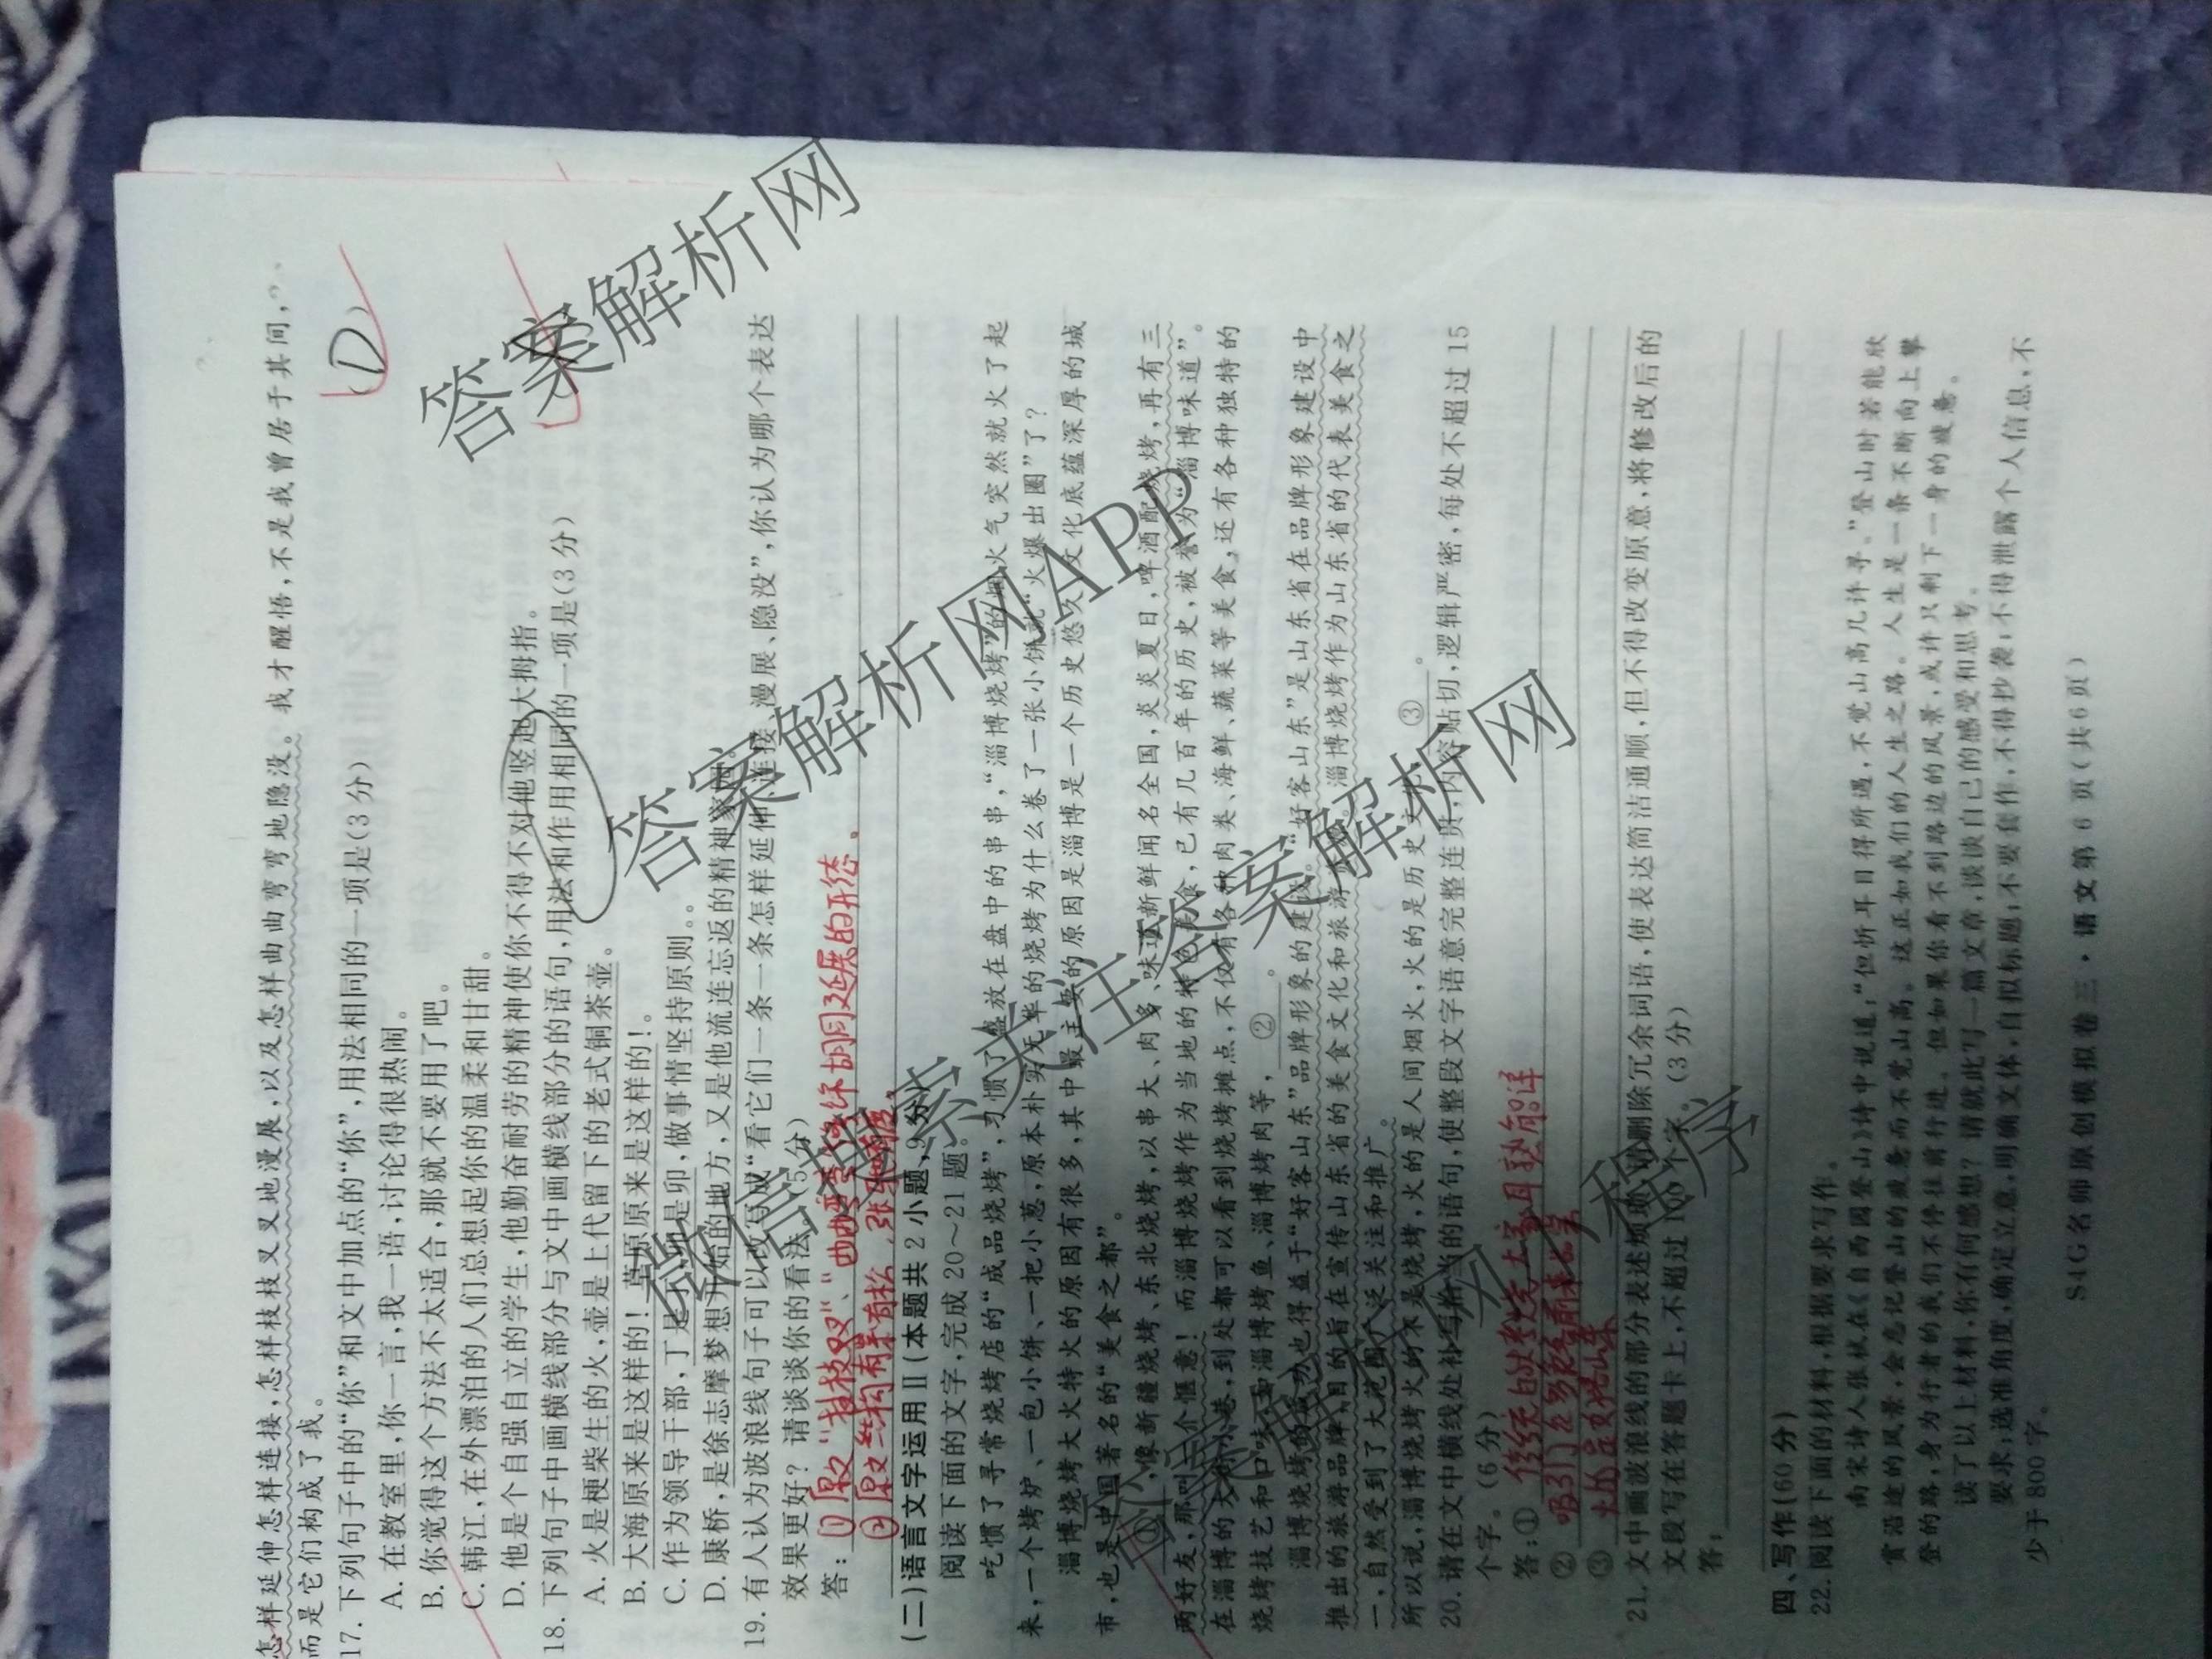 怎样延伸怎样连接,怎样枝枝叉叉地漫展,以及怎样曲曲弯弯地隐没。我才醒悟,不是我曾居于其间,
而是它们构成了我。
17. 下列句子中的“你”和文中加点的“你”,用法相同的一项是(3分)
D
A. 在教室里,你一言,我一语,讨论得很热闹。
B. 你觉得这个方法不太适合,那就不要用了吧。
C. 韩江,在外漂泊的人们总想起你的温柔和甘甜。
D. 他是个自强自立的学生,他勤奋耐劳的精神使你不得不对他竖起大拇指。
18. 下列句子中画横线部分与文中画横线部分的语句,用法和作用相同的一项是(3分)
A. 火是梗柴生的火,壶是上代留下的老式铜茶壶。
B. 大海原来是这样的!草原原来是这样的!。
C. 作为领导干部,丁是丁,卯是卯,做事情坚持原则。
D. 康桥,是徐志摩梦想开始的地方,又是他流连忘返的精神家园。
19. 有人认为波浪线句子可以改写成“看它们一条一条怎样延伸、连接、漫展、隐没”,你认为哪个表达
效果更好?请谈谈你的看法。(5分)
答:①原文“枝枝叉叉”、“曲曲弯弯”
胡同延展的形态。
②原文结构有紧有松,张弛有度。
(二)语言文字运用Ⅱ(本题共2小题,9分)
阅读下面的文字,完成20~21题。
吃惯了寻常烧烤店的“成品烧烤”,习惯了盛放在盘中的串串,“淄博烧烤”的烟火气突然就火了起
来,一个烤炉、一包小饼、一把小葱,原本朴实无华的烧烤为什么卷了一张小饼就“火爆出圈”了?
淄博烧烤大火特火的原因有很多,其中最主要的原因是淄博是一个历史悠久、文化底蕴深厚的城
市,也是中国著名的“美食之都”。
①,像新疆烧烤、东北烧烤,以串大、肉多、味道新鲜闻名全国,炎炎夏日,啤酒配烧烤,再有三
两好友,那叫一个惬意!而淄博烧烤作为当地的特色美食,已有几百年的历史,被誉为“淄博味道”。
在淄博的大街小巷,到处都可以看到烧烤摊点,不仅有各种肉类、海鲜、蔬菜等美食,还有各种独特的
烧烤技艺和口味,如淄博烤鱼、淄博烤肉等,②。
淄博烧烤的成功也得益于“好客山东”品牌形象的建设。“好客山东”是山东省在品牌形象建设中
推出的旅游品牌,目的旨在宣传山东省的美食文化和旅游资源。淄博烧烤作为山东省的代表美食之
一,自然受到了大范围广泛关注和推广。
所以说,淄博烧烤火的不是烧烤,火的是人间烟火,火的是历史文化,③。
20. 请在文中横线处补写恰当的语句,使整段文字语意完整连贯,内容贴切,逻辑严密,每处不超过15
个字。(6分)
答:①传统的烧烤大家耳熟能详
②吸引了众多食客前来品尝
③火的是好客山东
21. 文中画波浪线的部分表述烦琐,请删除冗余词语,使表达简洁通顺,但不得改变原意,将修改后的
文段写在答题卡上,不超过100个字。(3分)
答:
四、写作(60分)
22. 阅读下面的材料,根据要求写作。
南宋诗人张栻在《自西园登山》诗中说道,“但忻耳目得所遇,不觉山高几许寻。”登山时若能欣
赏沿途的风景,会忘记登山的疲惫而不觉山高。这正如我们的人生之路。人生是一条不断向上攀
登的路,身为行者的我们不停往前行进。但如果你看不到路边的风景,或许只剩下一身的疲惫。
读了以上材料,你有何感想?请就此写一篇文章,谈谈自己的感受和思考。
要求:选准角度,确定立意,明确文体,自拟标题;不要套作,不得抄袭;不得泄露个人信息,不
少于800字。
S4G名师原创模拟卷三·语文第6页(共6页)
答案解析网
答案解析网APP
答案解析网